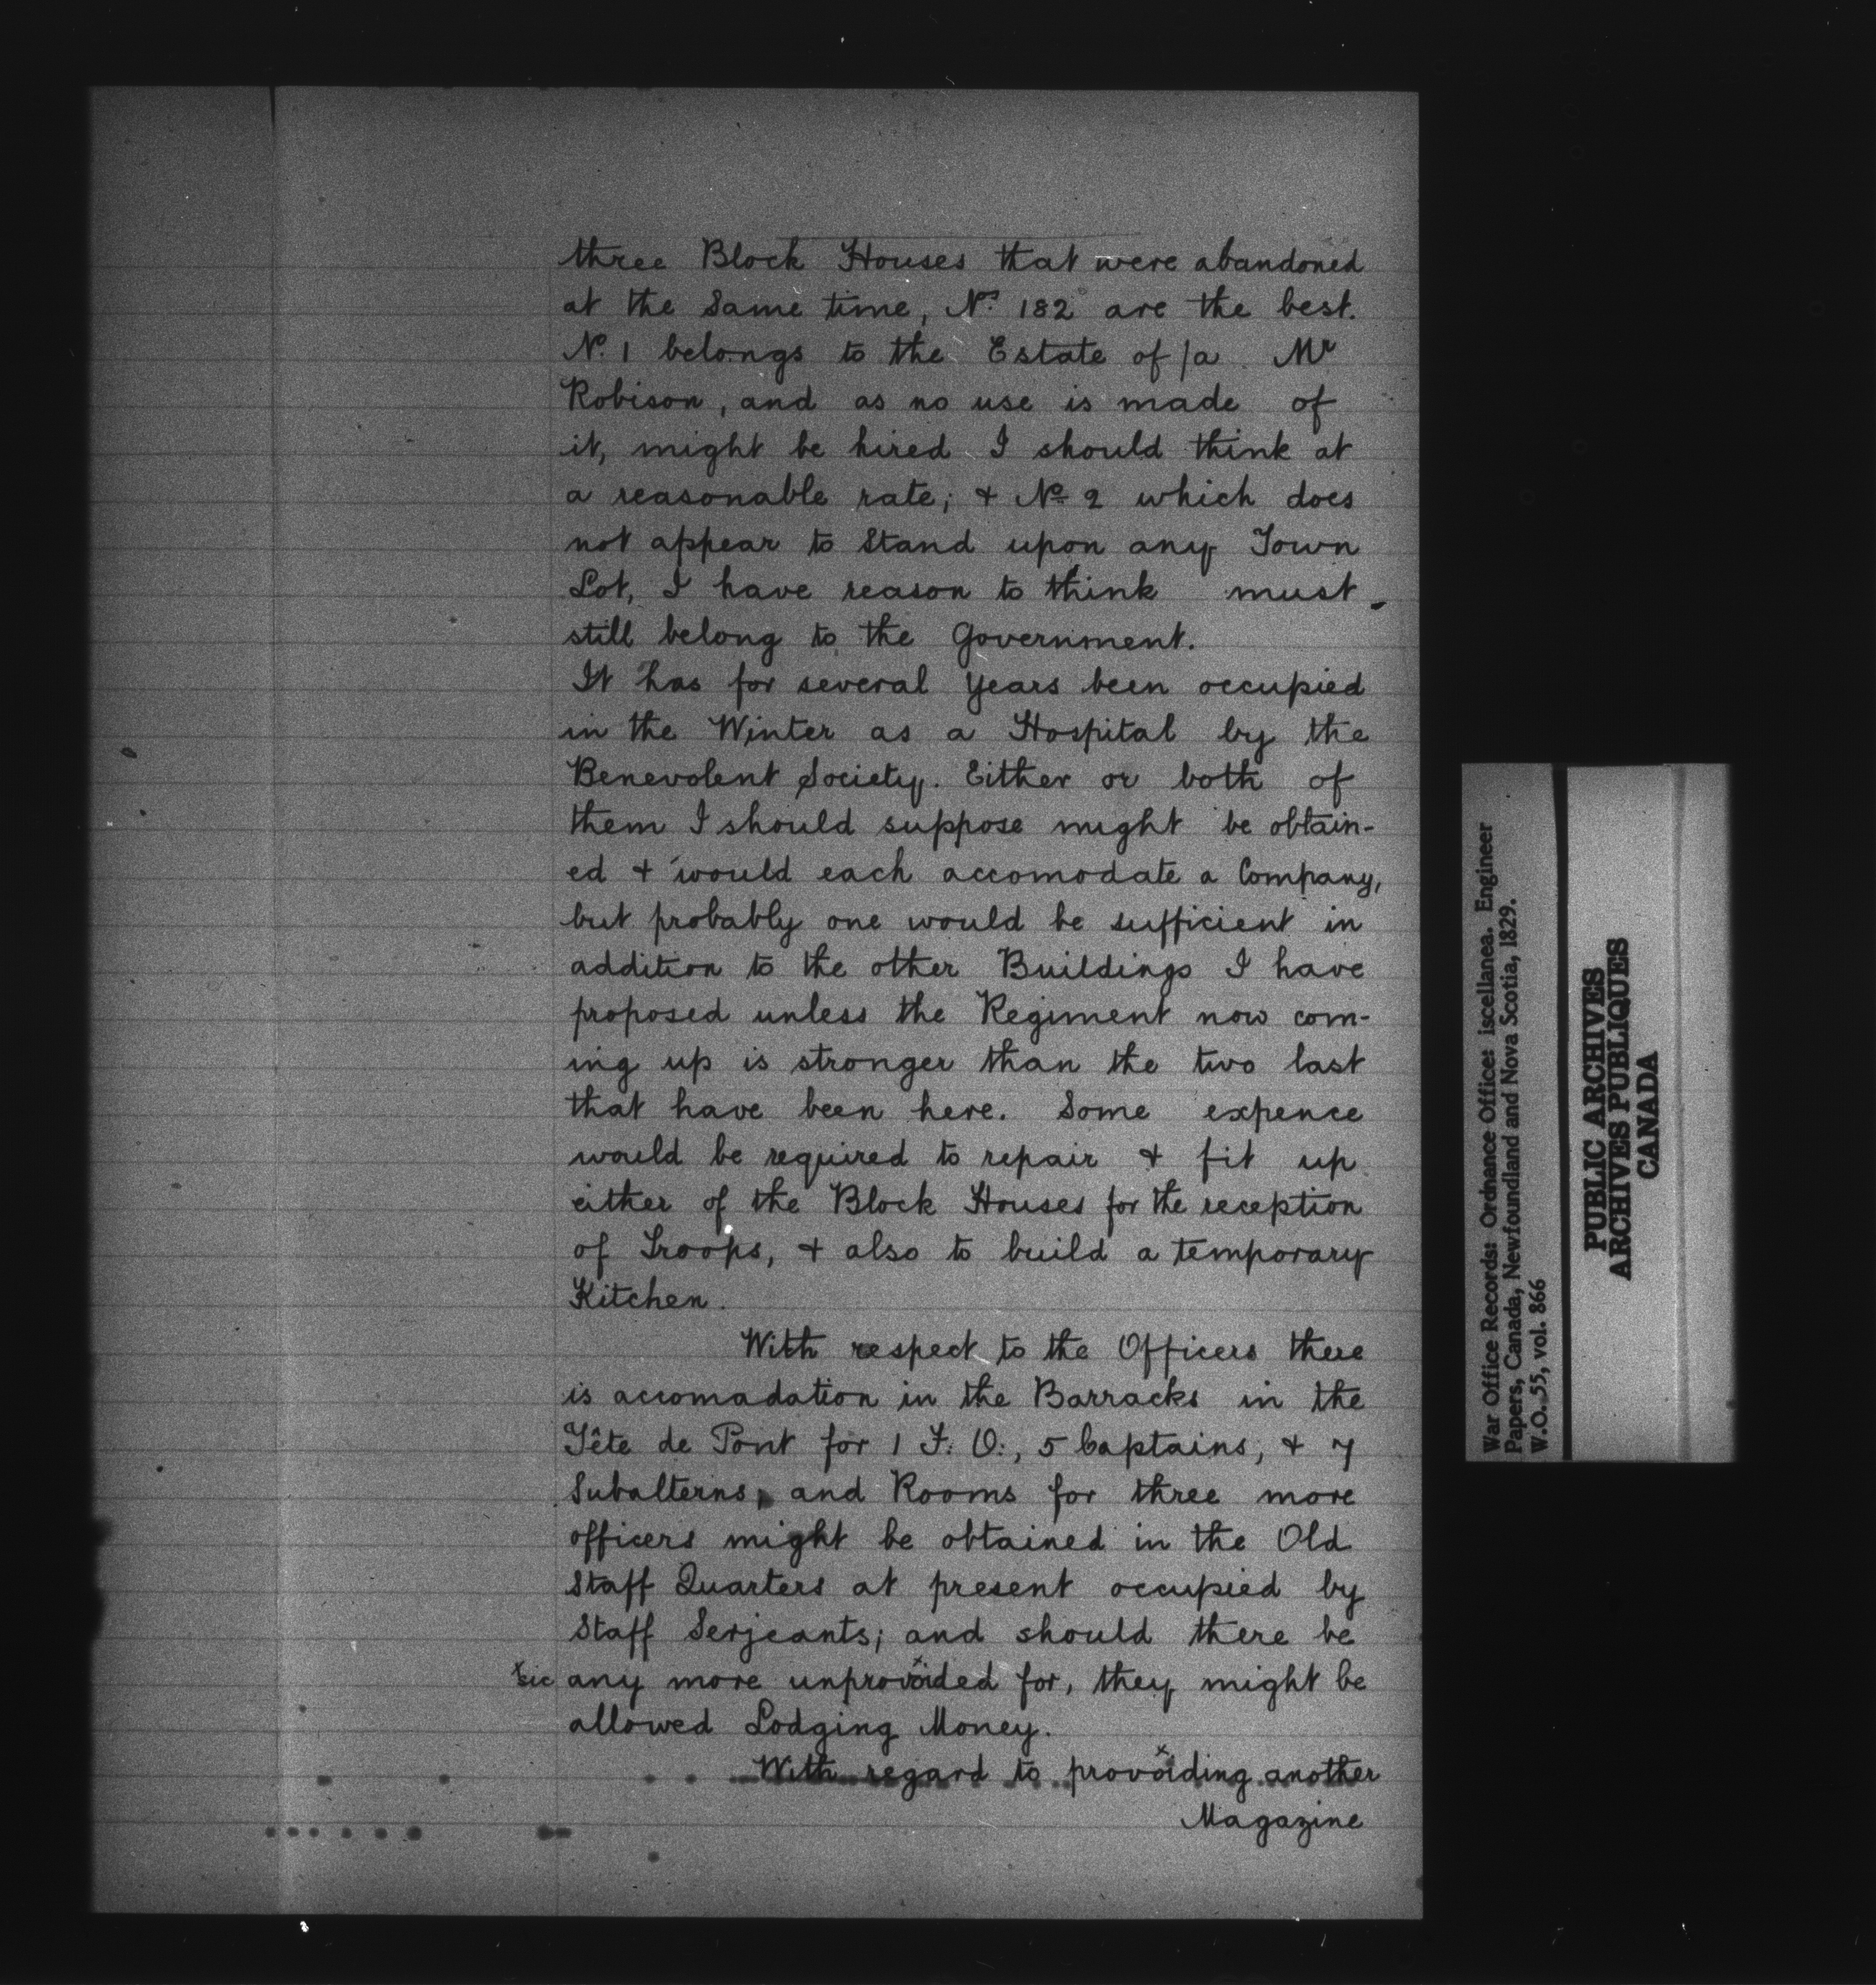 three Block Houses that were abandoned
at the Same time, No. 182 are the best.
No. 1 belongs to the Estate of /a Mr
Robison, and as no use is made of
it, might be hired I should think at
a reasonable rate; & No 2 which does
not appear to Stand upon any Town
Lot, I have reason to think must
still belong to the Government.
It has for several years been occupied
in the Winter as a Hospital by the
Benevolent Society. Either or both of
them I should suppose might be obtain-
ed & would each accomodate a Company,
but probably one would be sufficient in
addition to the other Buildings I have
proposed unless the Regiment now com-
ing up is stronger than the two last
that have been here. Some expence
would be required to repair & fit up
either of the Block Houses for the reception
of Troops, & also to build a temporary
Kitchen.
With respect to the Officers there
is accomadation in the Barracks in the
Tête de Pont for 1 F. O:, 5 Captains, & 7
Subalterns, and Rooms for three more
officers might be obtained in the Old
Staff Quarters at present occupied by
Staff Serjeants; and should there be
x sic any more unprovoided x for, they might be
allowed Lodging Money.
With regard to provoiding x another
Magazine
War Office Records: Ordnance Office: iscellanea. Engineer
Papers, Canada, Newfoundland and Nova Scotia, 1829.
W.O. 55, vol. 866
PUBLIC ARCHIVES
ARCHIVES PUBLIQUES
CANADA